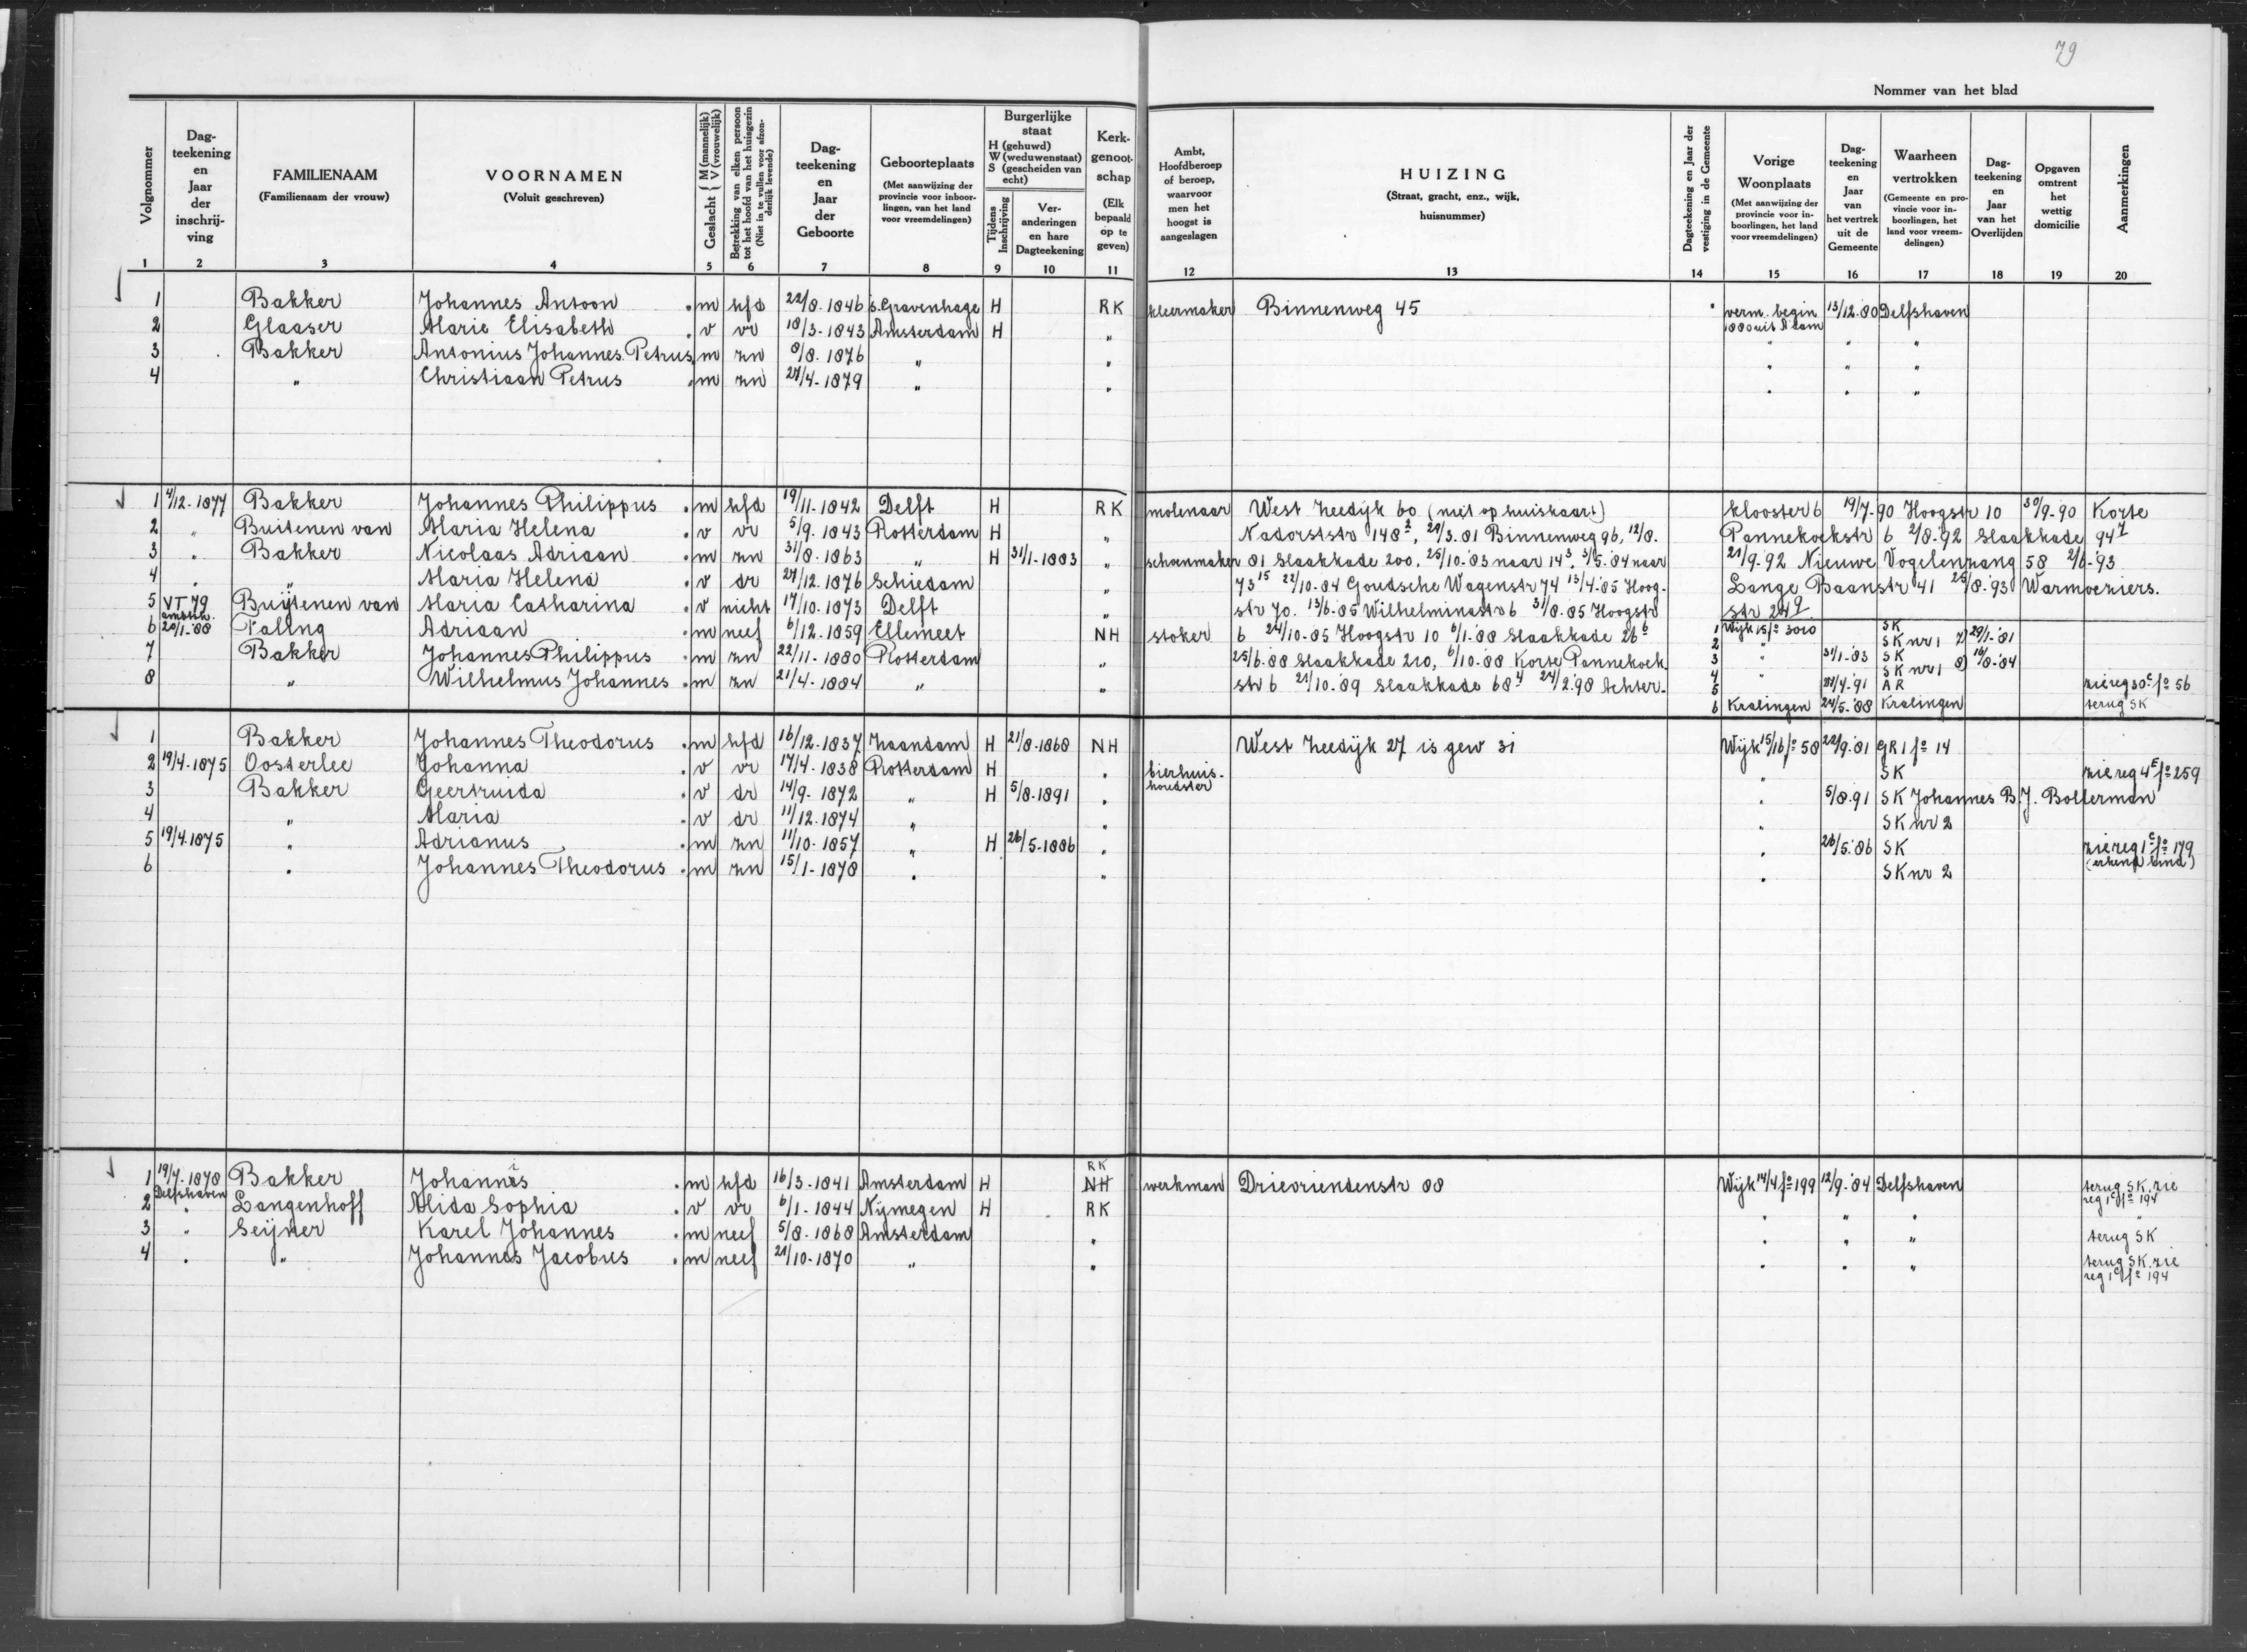 79
Nommer van het blad
Volgnommer | Dagteekening en Jaar der inschrijving | FAMILIENAAM (Familienaam der vrouw) | VOORNAMEN (Voluit geschreven) | Geslacht { M (mannelijk) V (vrouwelijk) | Betrekking van elken persoon tot het hoofd van het huisgezin (Niet in te vullen voor afzonderlijk levende) | Dagteekening en Jaar der Geboorte | Geboorteplaats (Met aanwijzing der provincie voor inboorlingen, van het land voor vreemdelingen) | Burgerlijke staat H (gehuwd) W (weduwenstaat) S (gescheiden van echt) Tijdens Inschrijving | Veranderingen en hare Dagteekening | Kerkgenootschap (Elk bepaald op te geven) | Ambt, Hoofdberoep of beroep, waarvoor men het hoogst is aangeslagen | HUIZING (Straat, gracht, enz., wijk, huisnummer) | Dagteekening en Jaar der vestiging in de Gemeente | Vorige Woonplaats (Met aanwijzing der provincie voor inboorlingen, het land voor vreemdelingen) | Dagteekening en Jaar van het vertrek uit de Gemeente | Waarheen vertrokken (Gemeente en provincie voor inboorlingen, het land voor vreemdelingen) | Dagteekening en Jaar van het Overlijden | Opgaven omtrent het wettig domicilie | Aanmerkingen
1 2 3 4 5 6 7 8 9 10 11 12 13 14 15 16 17 18 19 20
1 Bakker Johannes Antoon m hfd 22/8.1846 's Gravenhage H RK kleermaker Binnenweg 45 verm. begin 13/12.80 Delfshaven
2 Glaaser Marie Elisabeth v vr 18/3-1843 Amsterdam H " 1880 uit A'dam " " "
3 Bakker Antonius Johannes Petrus m zn 8/8.1876 " " " " "
4 " Christiaan Petrus m zn 27/4-1879 " " " " "
1 4/12-1877 Bakker Johannes Philippus m hfd 19/11-1842 Delft H RK molenaar West Zeedijk 60 (niet op huiskaart) klooster 6 19/7-90 Hoogstr 10 30/9-90 Korte
2 " Buitenen van Maria Helena v vr 5/9.1843 Rotterdam H " Nadorststr 148², 29/3.81 Binnenweg 96, 12/8. Pannekoekstr 6 2/8-92 Slaakkade 94⁷
3 " Bakker Nicolaas Adriaan m zn 31/8.1863 " H 31/1-1883 " schoenmaker 81 Slaakkade 200, 25/10-83 naar 14³, 31/5.84 naar 21/9-92 Nieuwe Vogelenzang 58 2/6-93
4 " " Maria Helena v dr 27/12.1876 Schiedam " 73¹⁵ 22/10-84 Goudsche Wagenstr 74 13/4-85 Hoog- Lange Baanstr 41 25/8-93 Warmoeziers.
5 VT 79 Buijtenen van Maria Catharina v nicht 17/10.1873 Delft " str 70. 13/6-85 Wilhelminastr 6 31/8.85 Hoogstr str 249
6 ambtsh. 20/1-88 Falling Adriaan m neef 6/12.1859 Ellemeet NH stoker 6 24/10-85 Hoogstr 10 6/1-88 Slaakkade 26⁶ 1 Wijk 15 fo 3010 SK
7 Bakker Johannes Philippus m zn 22/11-1880 Rotterdam " 25/6.88 Slaakkade 210, 6/10-88 Korte Pannekoek 2 SK nr 1 7) 29/1-81
3 " 31/1-83 SK 8) 16/8-84
8 " Wilhelmus Johannes m zn 21/4-1884 " " str 6 21/10-89 Slaakkade 68⁴ 24/2.98 Achter- 4 " SK nr 1
5 21/4-91 AR zie reg 30c fo 56
6 Kralingen 24/5-88 Kralingen terug SK
1 Bakker Johannes Theodorus m hfd 16/12-1837 Zaandam H 21/8-1868 NH West Zeedijk 27 is gew 31 Wijk 15/16 fo 58 22/9-81 GR 1 fo 14
2 19/4-1875 Oosterlee Johanna v vr 17/4-1838 Rotterdam H " bierhuishoudster " SK zie reg 4E fo 259
3 Bakker Geertruida v dr 14/9-1872 " H 5/8-1891 " " 5/8-91 SK Johannes B.J. Bolterman
4 " Maria v dr 11/12.1874 " " " SK nr 2
5 19/4.1875 " Adrianus m zn 11/10-1857 " H 26/5-1886 " " 26/5-86 SK zie reg 1c fo 179
(erkend kind)
6 " Johannes Theodorus m zn 15/1-1878 " " " SK nr 2
1 19/7-1878 Bakker Johannis m hfd 16/3-1841 Amsterdam H RK NH werkman Drievriendenstr 88 Wijk 14/4 fo 199 12/9-84 Delfshaven terug SK, zie reg 1c fo 194
2 Delfshaven Langenhoff Alida Sophia v vr 6/1-1844 Nijmegen H RK " " " "
3 " Seijner Karel Johannes m neef 5/8-1868 Amsterdam " " " " terug SK
4 " " Johannes Jacobus m neef 21/10-1870 " " " " " terug SK, zie reg 1c fo 194